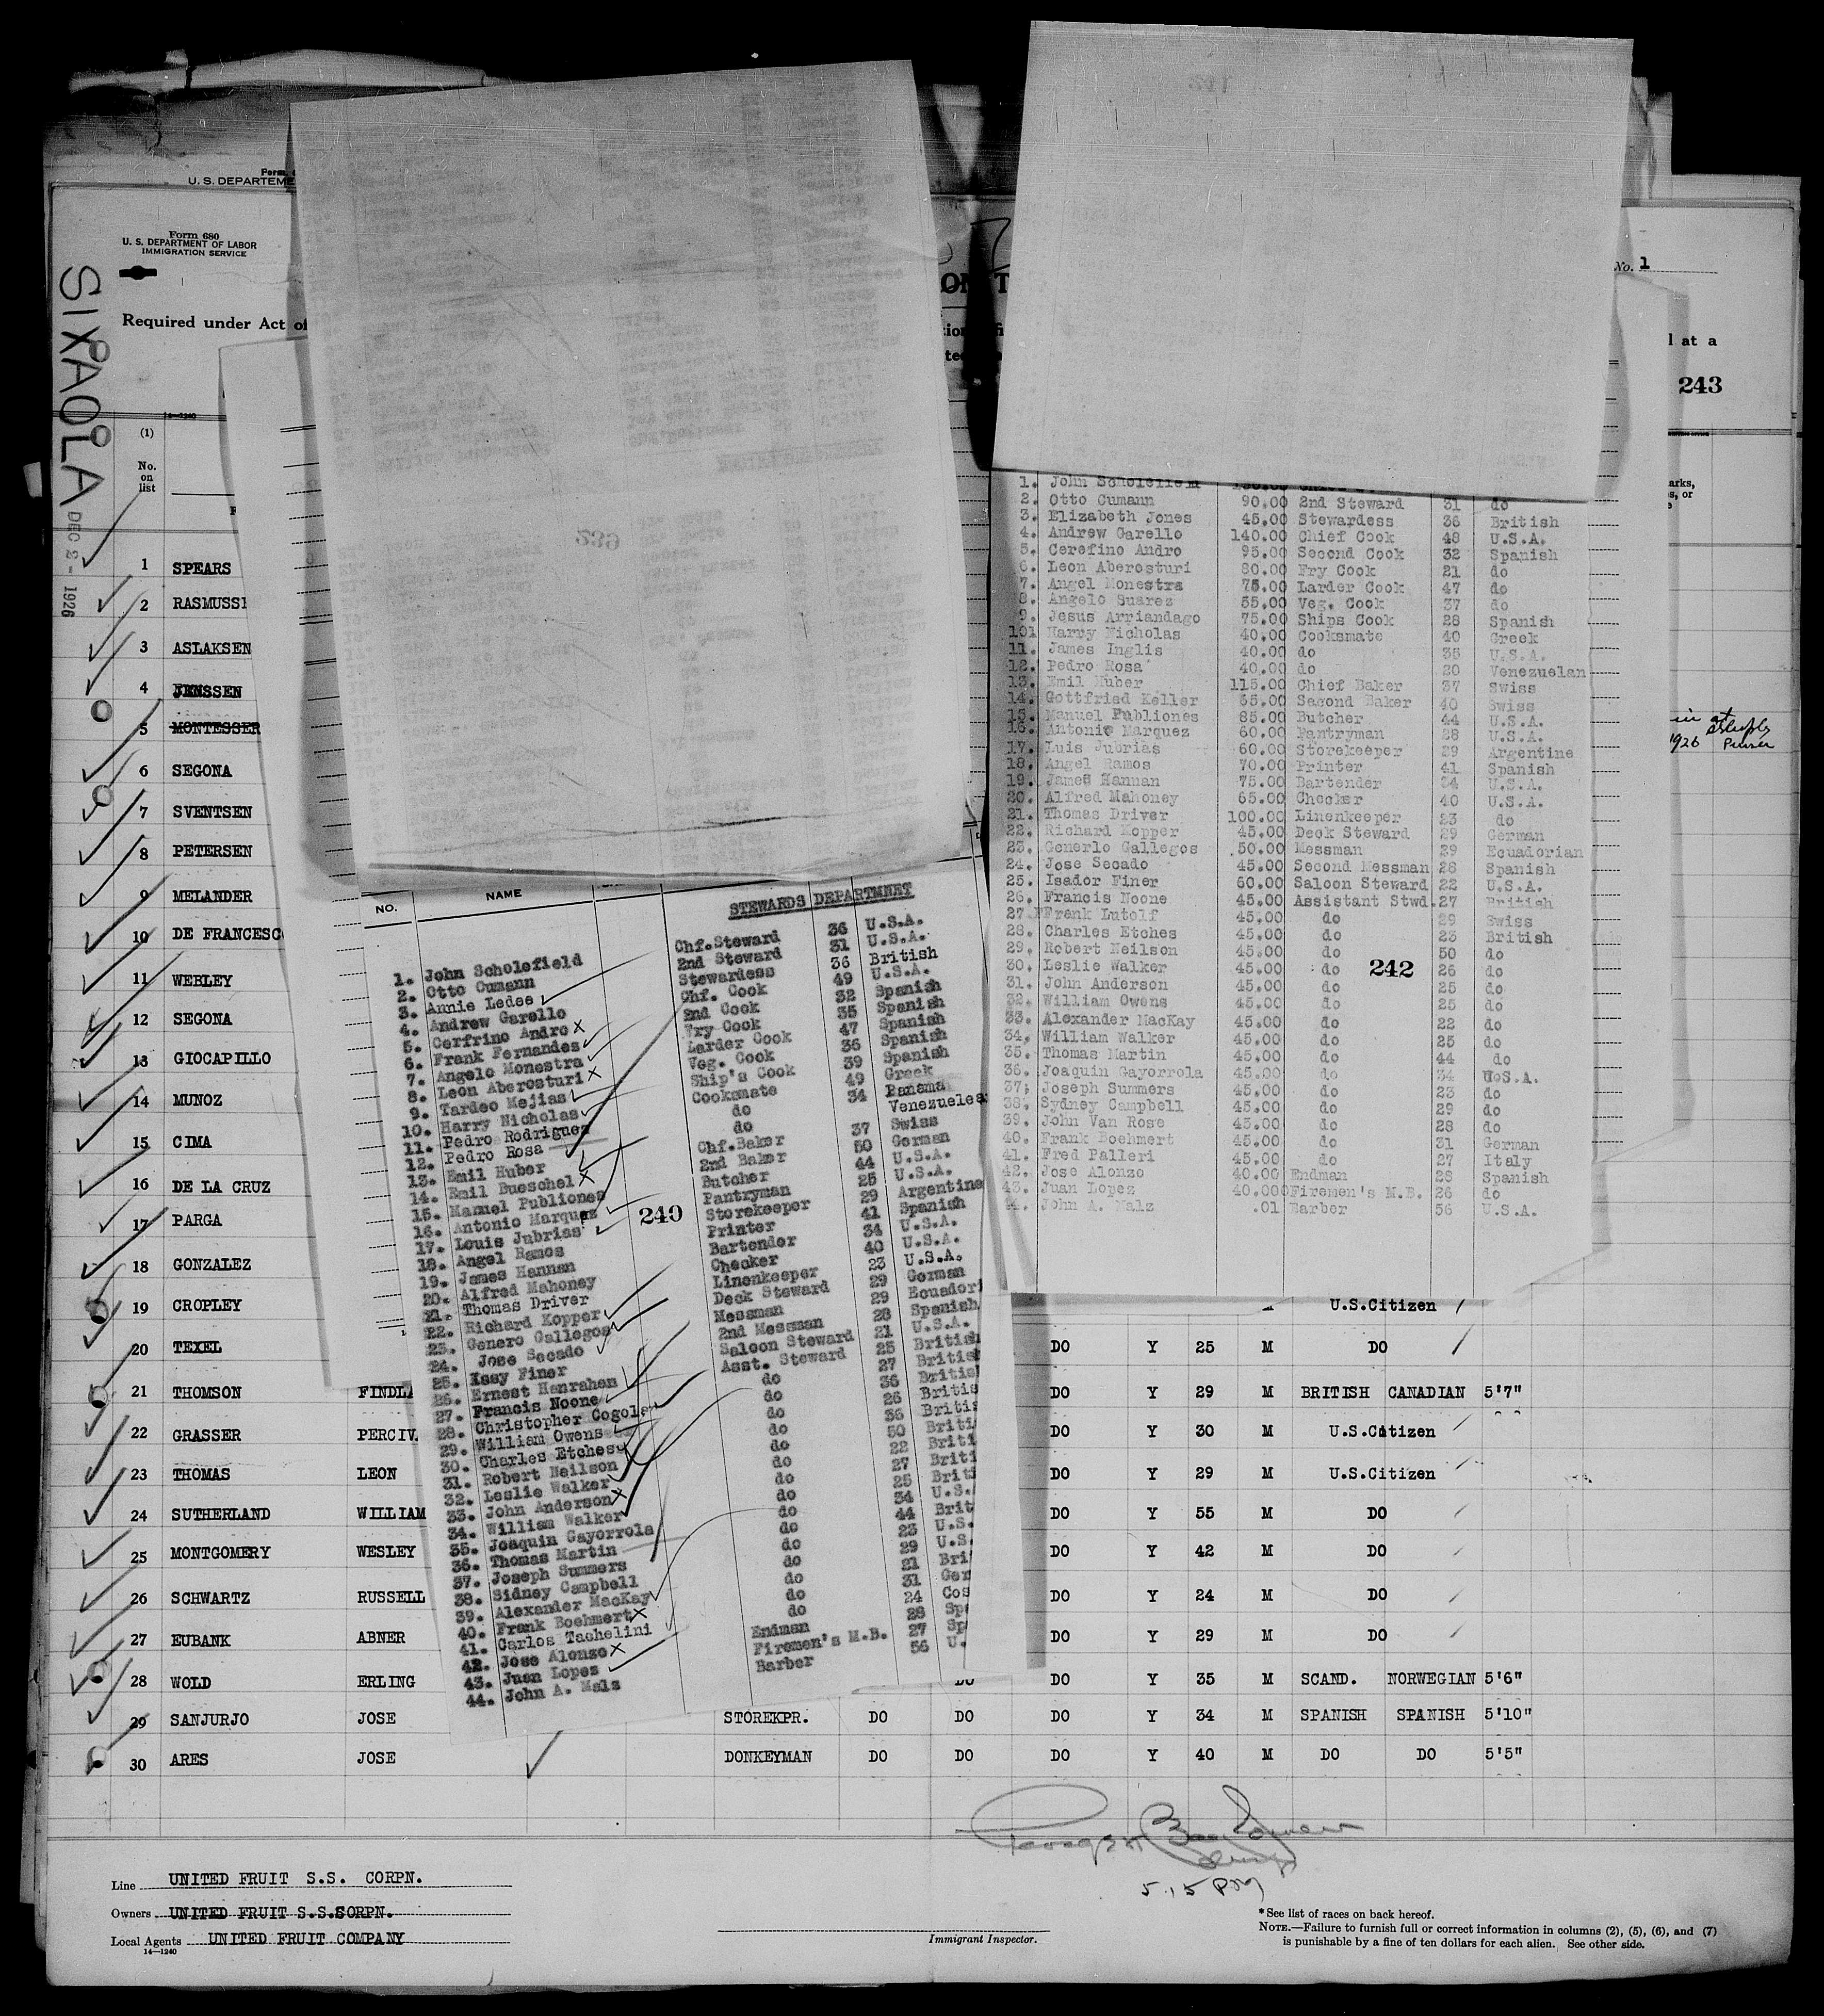 U. S. DEPARTEME
Form 680
U. S. DEPARTMENT OF LABOR
IMMIGRATION SERVICE
SIXAOLA
DEC 2- 1926
Required under Act of
No. 1
l at a
243
14—1240
(1)
No.
on
list
arks,
s, or
1 SPEARS
2 RASMUSSE
3 ASLAKSEN
4 JENSSEN
5 MONTESSER
6 SEGONA
7 SVENTSEN
8 PETERSEN
9 MELANDER
10 DE FRANCESC
11 WEBLEY
12 SEGONA
13 GIOCAPILLO
14 MUNOZ
15 CIMA
16 DE LA CRUZ
17 PARGA
18 GONZALEZ
19 CROPLEY U.S.Citizen
20 TEXEL DO Y 25 M DO
21 THOMSON FINDLA DO Y 29 M BRITISH CANADIAN 5'7"
22 GRASSER PERCIV DO Y 30 M U.S.Citizen
23 THOMAS LEON DO Y 29 M U.S.Citizen
24 SUTHERLAND WILLIAM DO Y 55 M DO
25 MONTGOMERY WESLEY DO Y 42 M DO
26 SCHWARTZ RUSSELL DO Y 24 M DO
27 EUBANK ABNER DO Y 29 M DO
28 WOLD ERLING DO DO Y 35 M SCAND. NORWEGIAN 5'6"
29 SANJURJO JOSE STOREKPR. DO DO DO Y 34 M SPANISH SPANISH 5'10"
30 ARES JOSE DONKEYMAN DO DO DO Y 40 M DO DO 5'5"
in at
1926 Purser
239
241
NO. NAME
STEWARDS DEPARTMNET
1. John Scholefield Chf.Steward 36 U.S.A.
2. Otto Cumann 2nd Steward 31 U.S.A.
3. Annie Ledee Stewardess 36 British
4. Andrew Garello Chf. Cook 49 U.S.A.
5. Cerfrino Andro 2nd Cook 32 Spanish
6. Frank Fernandes Fry Cook 35 Spanish
7. Angelo Monestra Larder Cook 47 Spanish
8. Leon Aberosturi Veg. Cook 36 Spanish
9. Tardeo Mejias Ship's Cook 39 Spanish
10. Harry Nicholas Cooksmate 49 Greek
11. Pedro Rodriguez do 34 Panama
12. Pedro Rosa do Venezuelea
13. Emil Huber Chf.Baker 37 Swiss
14. Emil Bueschel 2nd Baker 50 German
15. Manuel Publiones Butcher 44 U.S.A.
16. Antonio Marquez Pantryman 25 U.S.A.
17. Louis Jubrias Storekeeper 29 Argentine
18. Angel Ramos Printer 41 Spanish
19. James Hannan Bartender 34 U.S.A.
20. Alfred Mahoney Checker 40 U.S.A.
21. Thomas Driver Linenkeeper 23 U.S.A.
22. Richard Kopper Deck Steward 29 German
23. Genero Gallegos Messman 29 Ecuadori
24. Jose Secado 2nd Messman 28 Spanish
25. Issy Finer Saloon Steward 21 U.S.A.
26. Ernest Hanrahan Asst. Steward 25 British
27. Francis Noone do 27 British
28. Christopher Cogole do 36 Britis
29. William Owens do 26 Britis
30. Charles Etches do 36 Britis
31. Robert Neilson do 50 Briti
32. Leslie Walker do 22 Briti
33. John Anderson do 27 Briti
34. William Walker do 25 Briti
35. Joaquin Gayorrola do 34 U.S.
36. Thomas Martin do 44 Brit
37. Joseph Summers do 23 U.S.
38. Sidney Campbell do 29 U.S.
39. Alexander MacKay do 21 Bri
40. Frank Boehmert do 31 Ger
41. Carlos Tachelini do 24 Cos
42. Jose Alonzo Endman 28 Spa
43. Juan Lopez Firemen's M.B. 27 Sp
44. John A. Malz Barber 56 U.
240
1. John Scholefield
2. Otto Cumann 90.00 2nd Steward 31 do
3. Elizabeth Jones 45.00 Stewardess 36 British
4. Andrew Garello 140.00 Chief Cook 48 U.S.A.
5. Cerefino Andro 95.00 Second Cook 32 Spanish
6. Leon Aberosturi 80.00 Fry Cook 21 do
7. Angel Monestra 75.00 Larder Cook 47 do
8. Angelo Suarez 55.00 Veg. Cook 37 do
9. Jesus Arriandago 75.00 Ships Cook 28 Spanish
101 Harry Nicholas 40.00 Cooksmate 40 Greek
11. James Inglis 40.00 do 35 U.S.A.
12. Pedro Rosa 40.00 do 20 Venezuelan
13. Emil Huber 115.00 Chief Baker 37 Swiss
14. Gottfried Keller 65.00 Second Baker 40 Swiss
15. Manuel Publiones 85.00 Butcher 44 U.S.A.
16. Antonio Marquez 60.00 Pantryman 28 U.S.A.
17. Luis Jubrias 60.00 Storekeeper 29 Argentine
18. Angel Ramos 70.00 Printer 41 Spanish
19. James Hannan 75.00 Bartender 34 U.S.A.
20. Alfred Mahoney 65.00 Checker 40 U.S.A.
21. Thomas Driver 100.00 Linenkeeper 23 do
22. Richard Kopper 45.00 Deck Steward 29 German
23. Generlo Gallegos 50.00 Messman 29 Ecuadorian
24. Jose Secado 45.00 Second Messman 28 Spanish
25. Isador Finer 60.00 Saloon Steward 22 U.S.A.
26. Francis Noone 45.00 Assistant Stwd. 27 British
27. Frank Lutolf 45.00 do 29 Swiss
28. Charles Etches 45.00 do 23 British
29. Robert Neilson 45.00 do 50 do
30. Leslie Walker 45.00 do 26 do
242
31. John Anderson 45.00 do 25 do
32. William Owens 45.00 do 25 do
33. Alexander MacKay 45.00 do 22 do
34. William Walker 45.00 do 25 do
35. Thomas Martin 45.00 do 44 do
36. Joaquin Gayorrola 45.00 do 34 UoS.A.
37; Joseph Summers 45.00 do 23 do
38. Sydney Campbell 45.00 do 29 do
39. John Van Rose 45.00 do 28 do
40. Frank Boehmert 45.00 do 31 German
41. Fred Palleri 45.00 do 27 Italy
42. Jose Alonzo 40.00 Endman 28 Spanish
43. Juan Lopez 40.000 Firemen's M.B. 26 do
44. John A. Malz .01 Barber 56 U.S.A.
5.15 PM
Line UNITED FRUIT S.S. CORPN.
Owners UNITED FRUIT S.S.SORPN.
Local Agents UNITED FRUIT COMPANY
14—1240
Immigrant Inspector.
* See list of races on back hereof.
NOTE.—Failure to furnish full or correct information in columns (2), (5), (6), and (7)
is punishable by a fine of ten dollars for each alien. See other side.